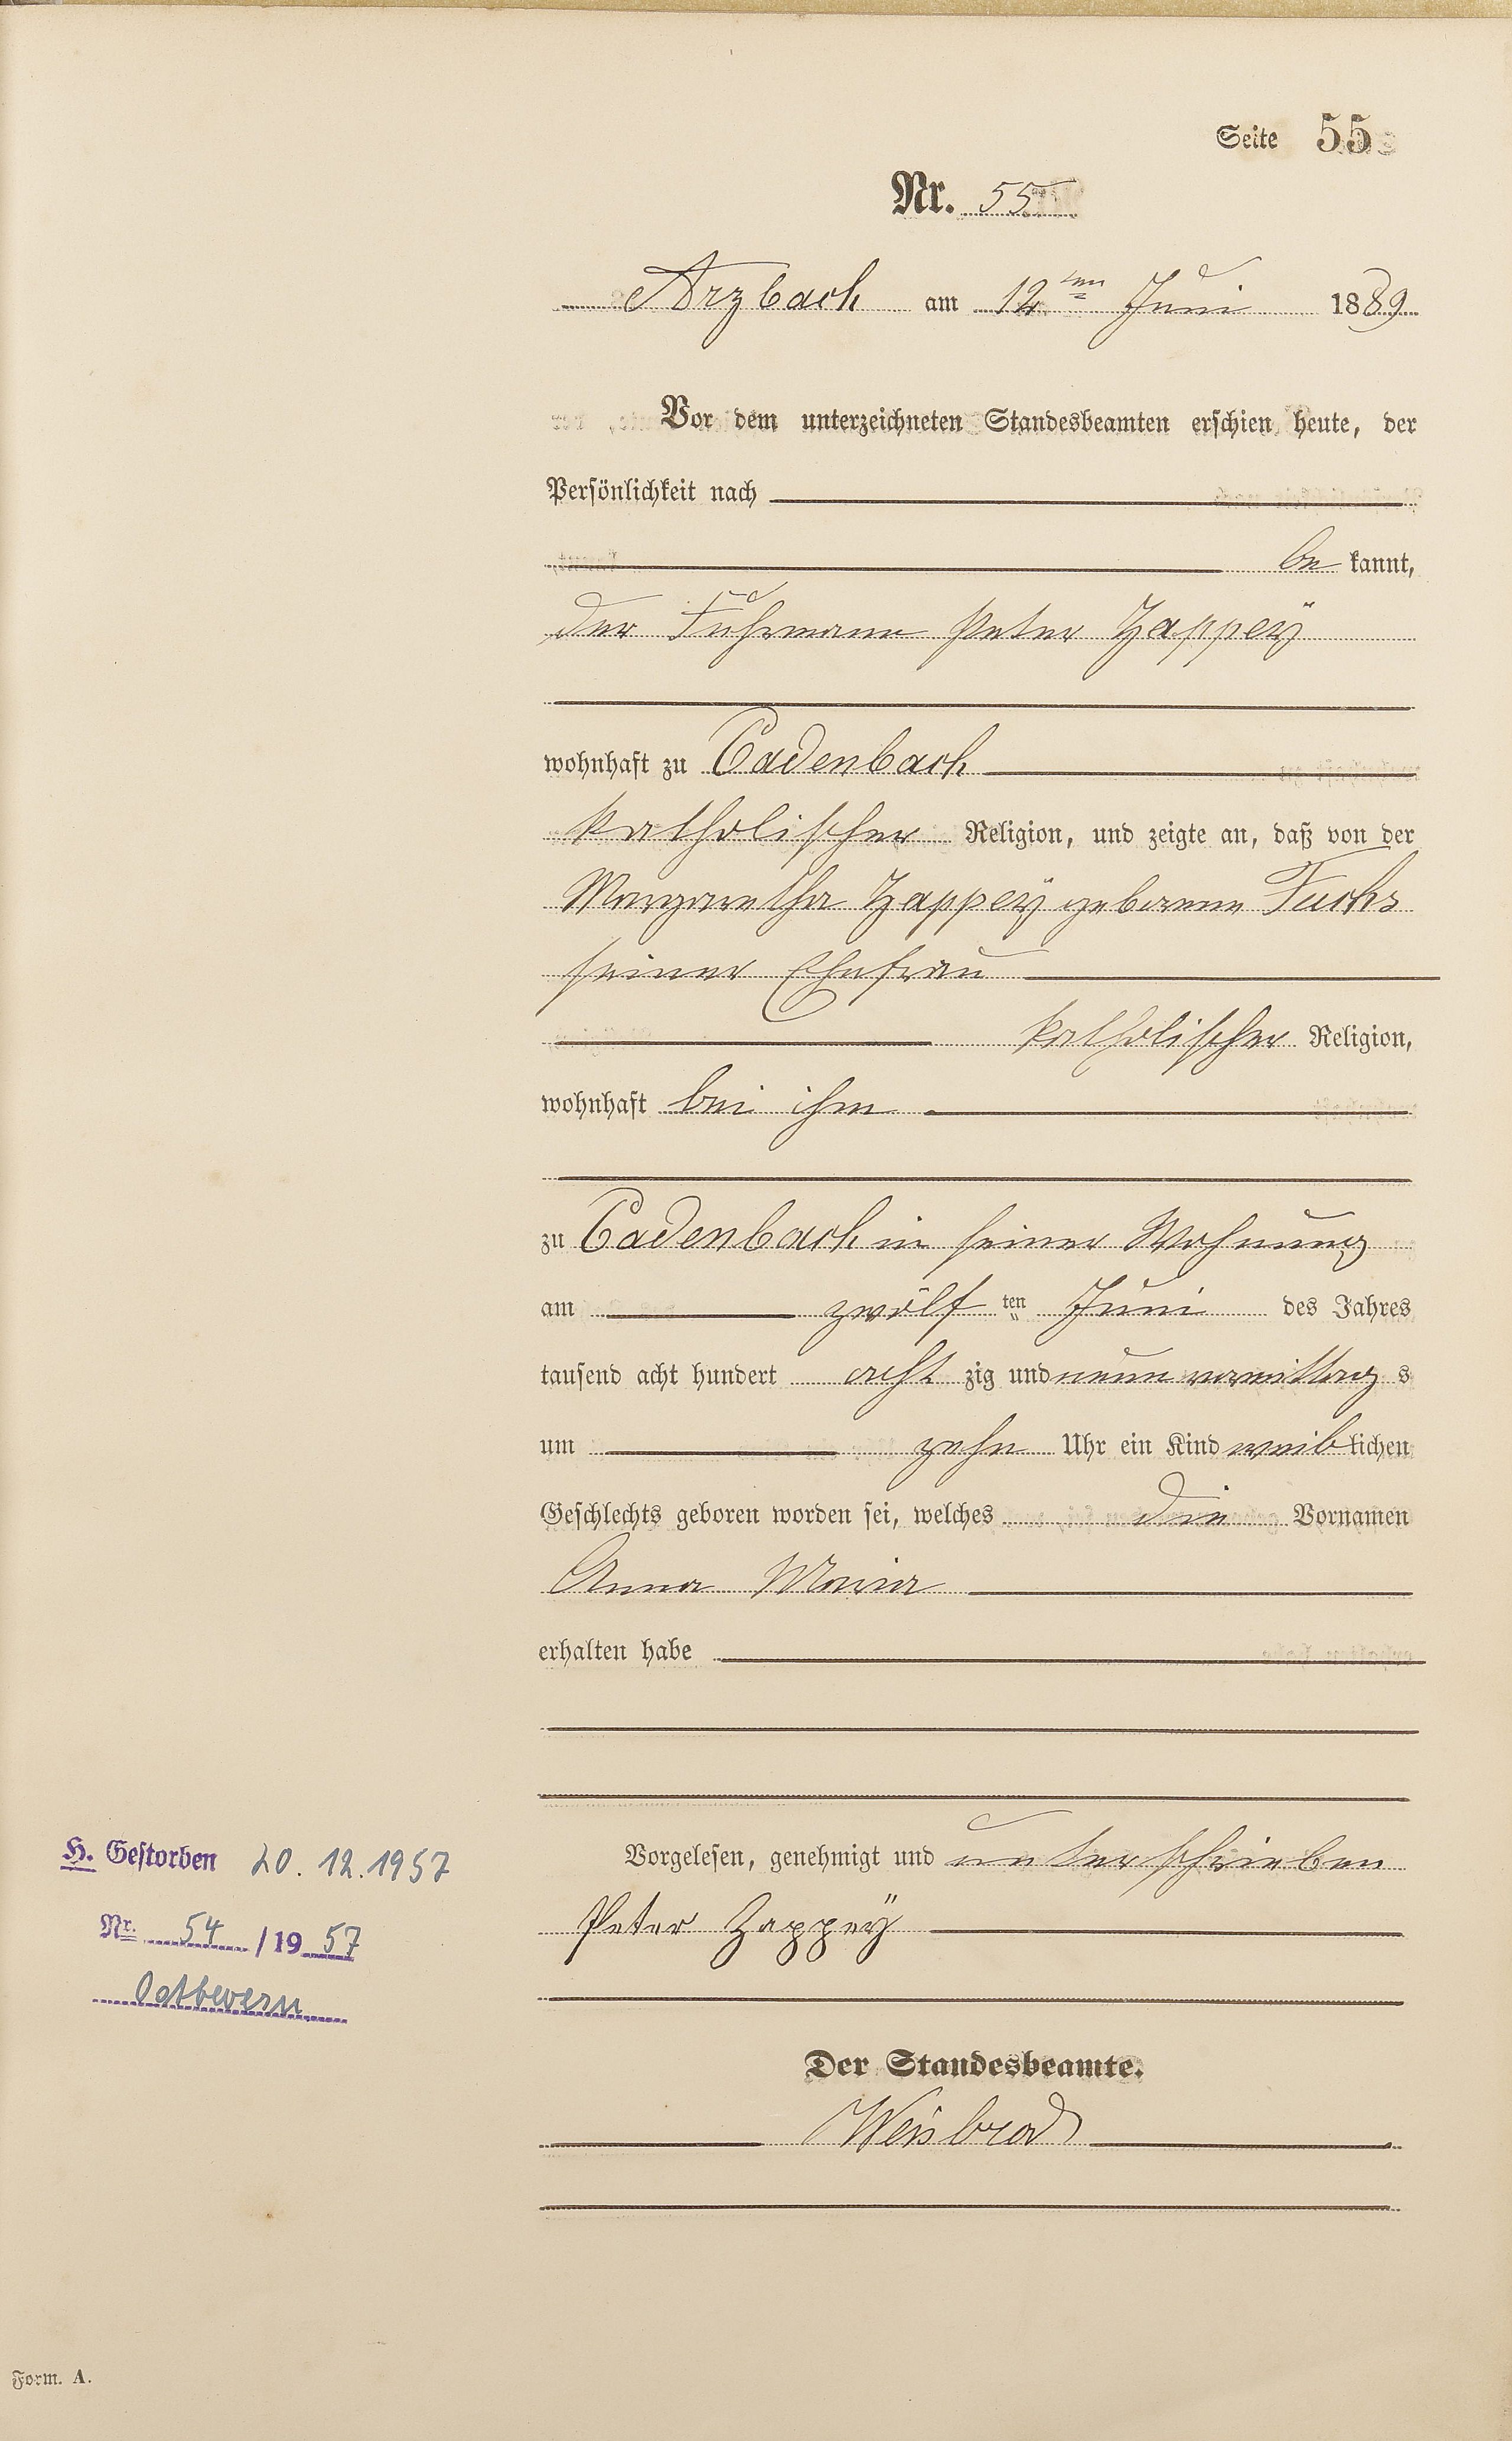 Seite 55
Nr. 55
Arzbach am 12ten Juni 1889
Vor dem unterzeichneten Standesbeamten erschien heute, der
Persönlichkeit nach
be kannt,
der Fuhrmann Peter Zappeÿ
wohnhaft zu Cadenbach
katholischer Religion, und zeigte an, daß von der
Margaretha Zappeÿ geborene Fuchs
seiner Ehefrau
katholischer Religion,
wohnhaft bei ihm
zu Cadenbach in seiner Wohnung
am zwölf ten Juni des Jahres
tausend acht hundert acht zig und neun vormittag s
um zehn Uhr ein Kind weib lichen
Geschlechts geboren worden sei, welches die Vornamen
Anna Maria
erhalten habe
Vorgelesen, genehmigt und unterschrieben
Peter Zappeÿ
Der Standesbeamte.
Weisbrod
H. Gestorben 20.12.1957
Nr. 54 /19 57
Ostbevern
Form. A.